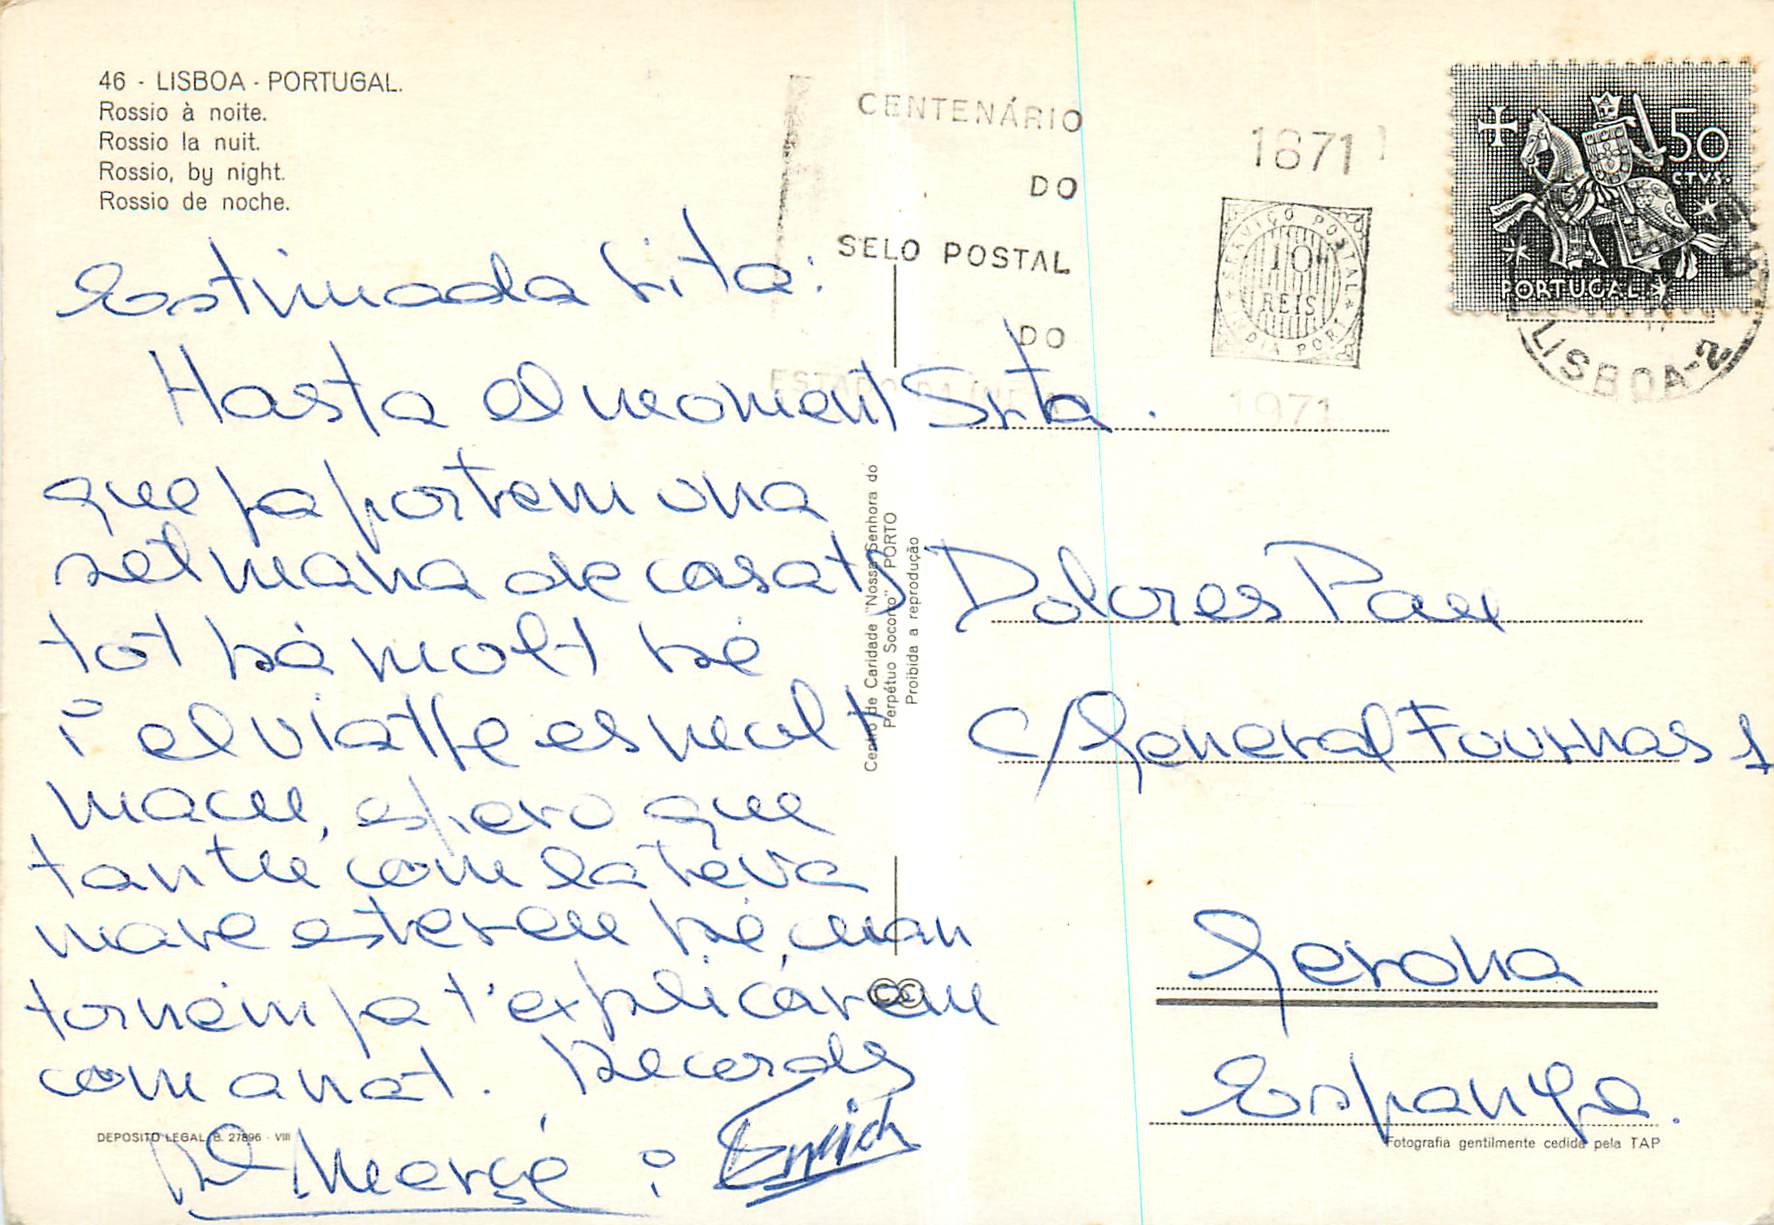 46 - LISBOA - PORTUGAL.
Rossio à noite.
Rossio la nuit.
Rossio, by night.
Rossio de noche.
Estimada Rita:
Hasta el moment
que ja portem una
setmana de casats
tot bé molt bé
i el viatje es molt
macu, espero que
tan tu com la teva
mare estereu bé, cuan
tornem ja t'explicarem
com anat. Records
Mª Mercé i Enrich
DEPOSITO LEGAL, B. 27896 - VIII
Centro de Caridade "Nossa Senhora do
Perpétuo Socorro" PORTO
Proibida a reprodução
CENTENÁRIO
DO
SELO POSTAL
DO
ESTADO DA ÍNDIA
1871
SERVIÇO POSTAL
10
REIS
INDIA PORT.
1971
50
CTVS.
PORTUGAL
LISBOA-2
Srta.
Dolores Pau
C/ General Fournas 1
Gerona
Espanya.
Fotografia gentilmente cedida pela TAP